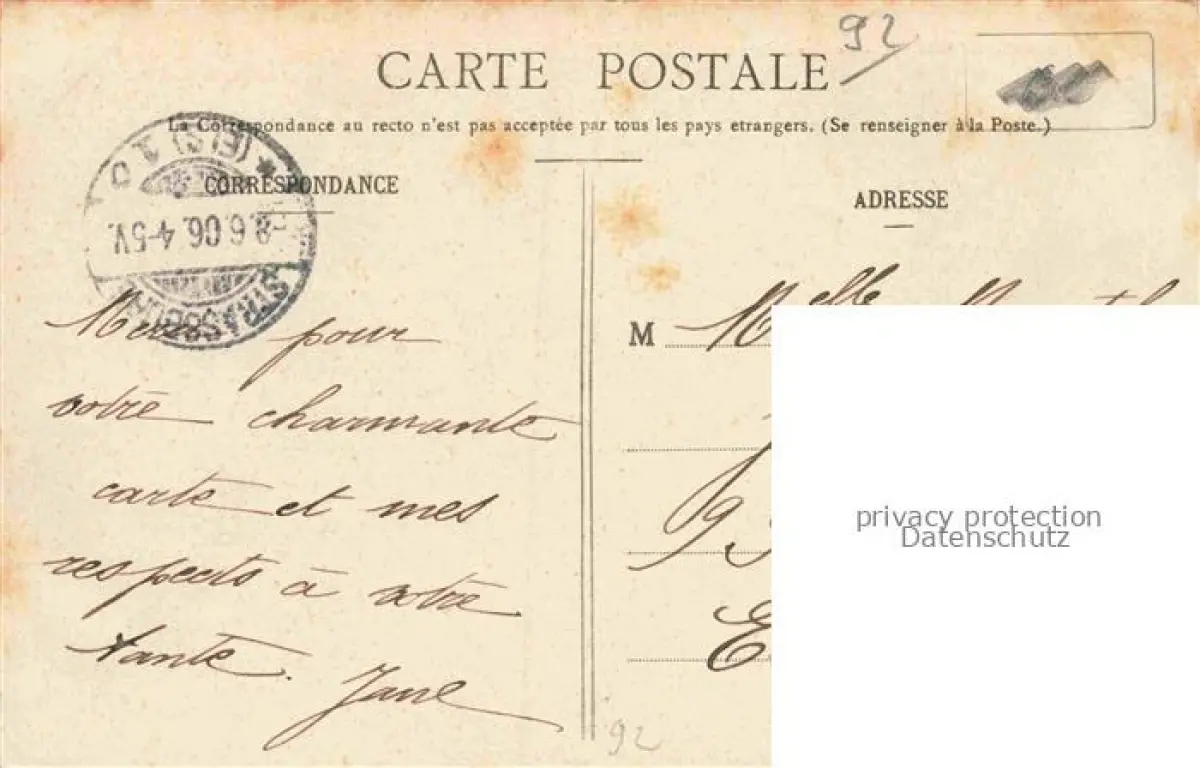 92
CARTE POSTALE
La Correspondance au recto n'est pas acceptée par tous les pays etrangers. (Se renseigner à la Poste.)
CORRESPONDANCE
ADRESSE
8.6.06. 4-5V.
STRASSBURG
Merci pour
votre charmante
carte et mes
respects à votre
tante. Jane
M Melle
privacy protection
Datenschutz
92